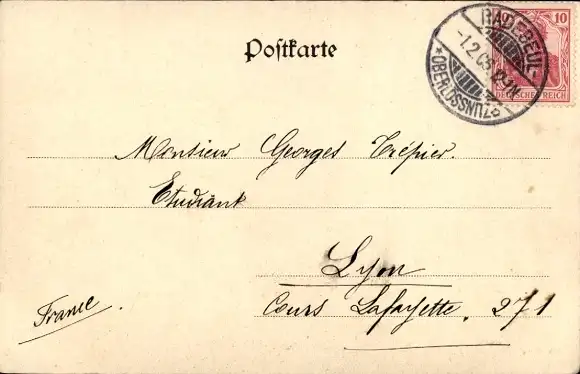 Postkarte
10
DEUTSCHES REICH
RADEBEUL-
-1.2.05
*OBERLÖSSNITZ
Monsieur Georges Crépier.
Etudiant
Lyon
Cours Lafayette, 271
France.